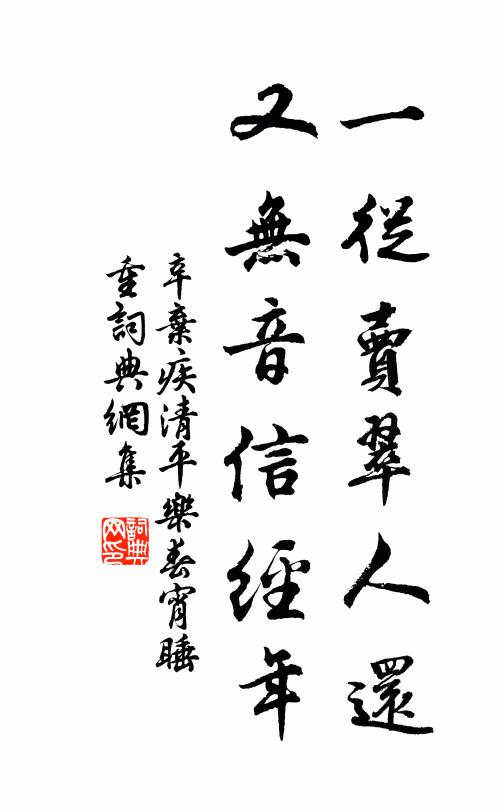 一從賣翠人還
又無音信經年
辛棄疾清平樂春宵睡
重詞典網集
詞典
网印